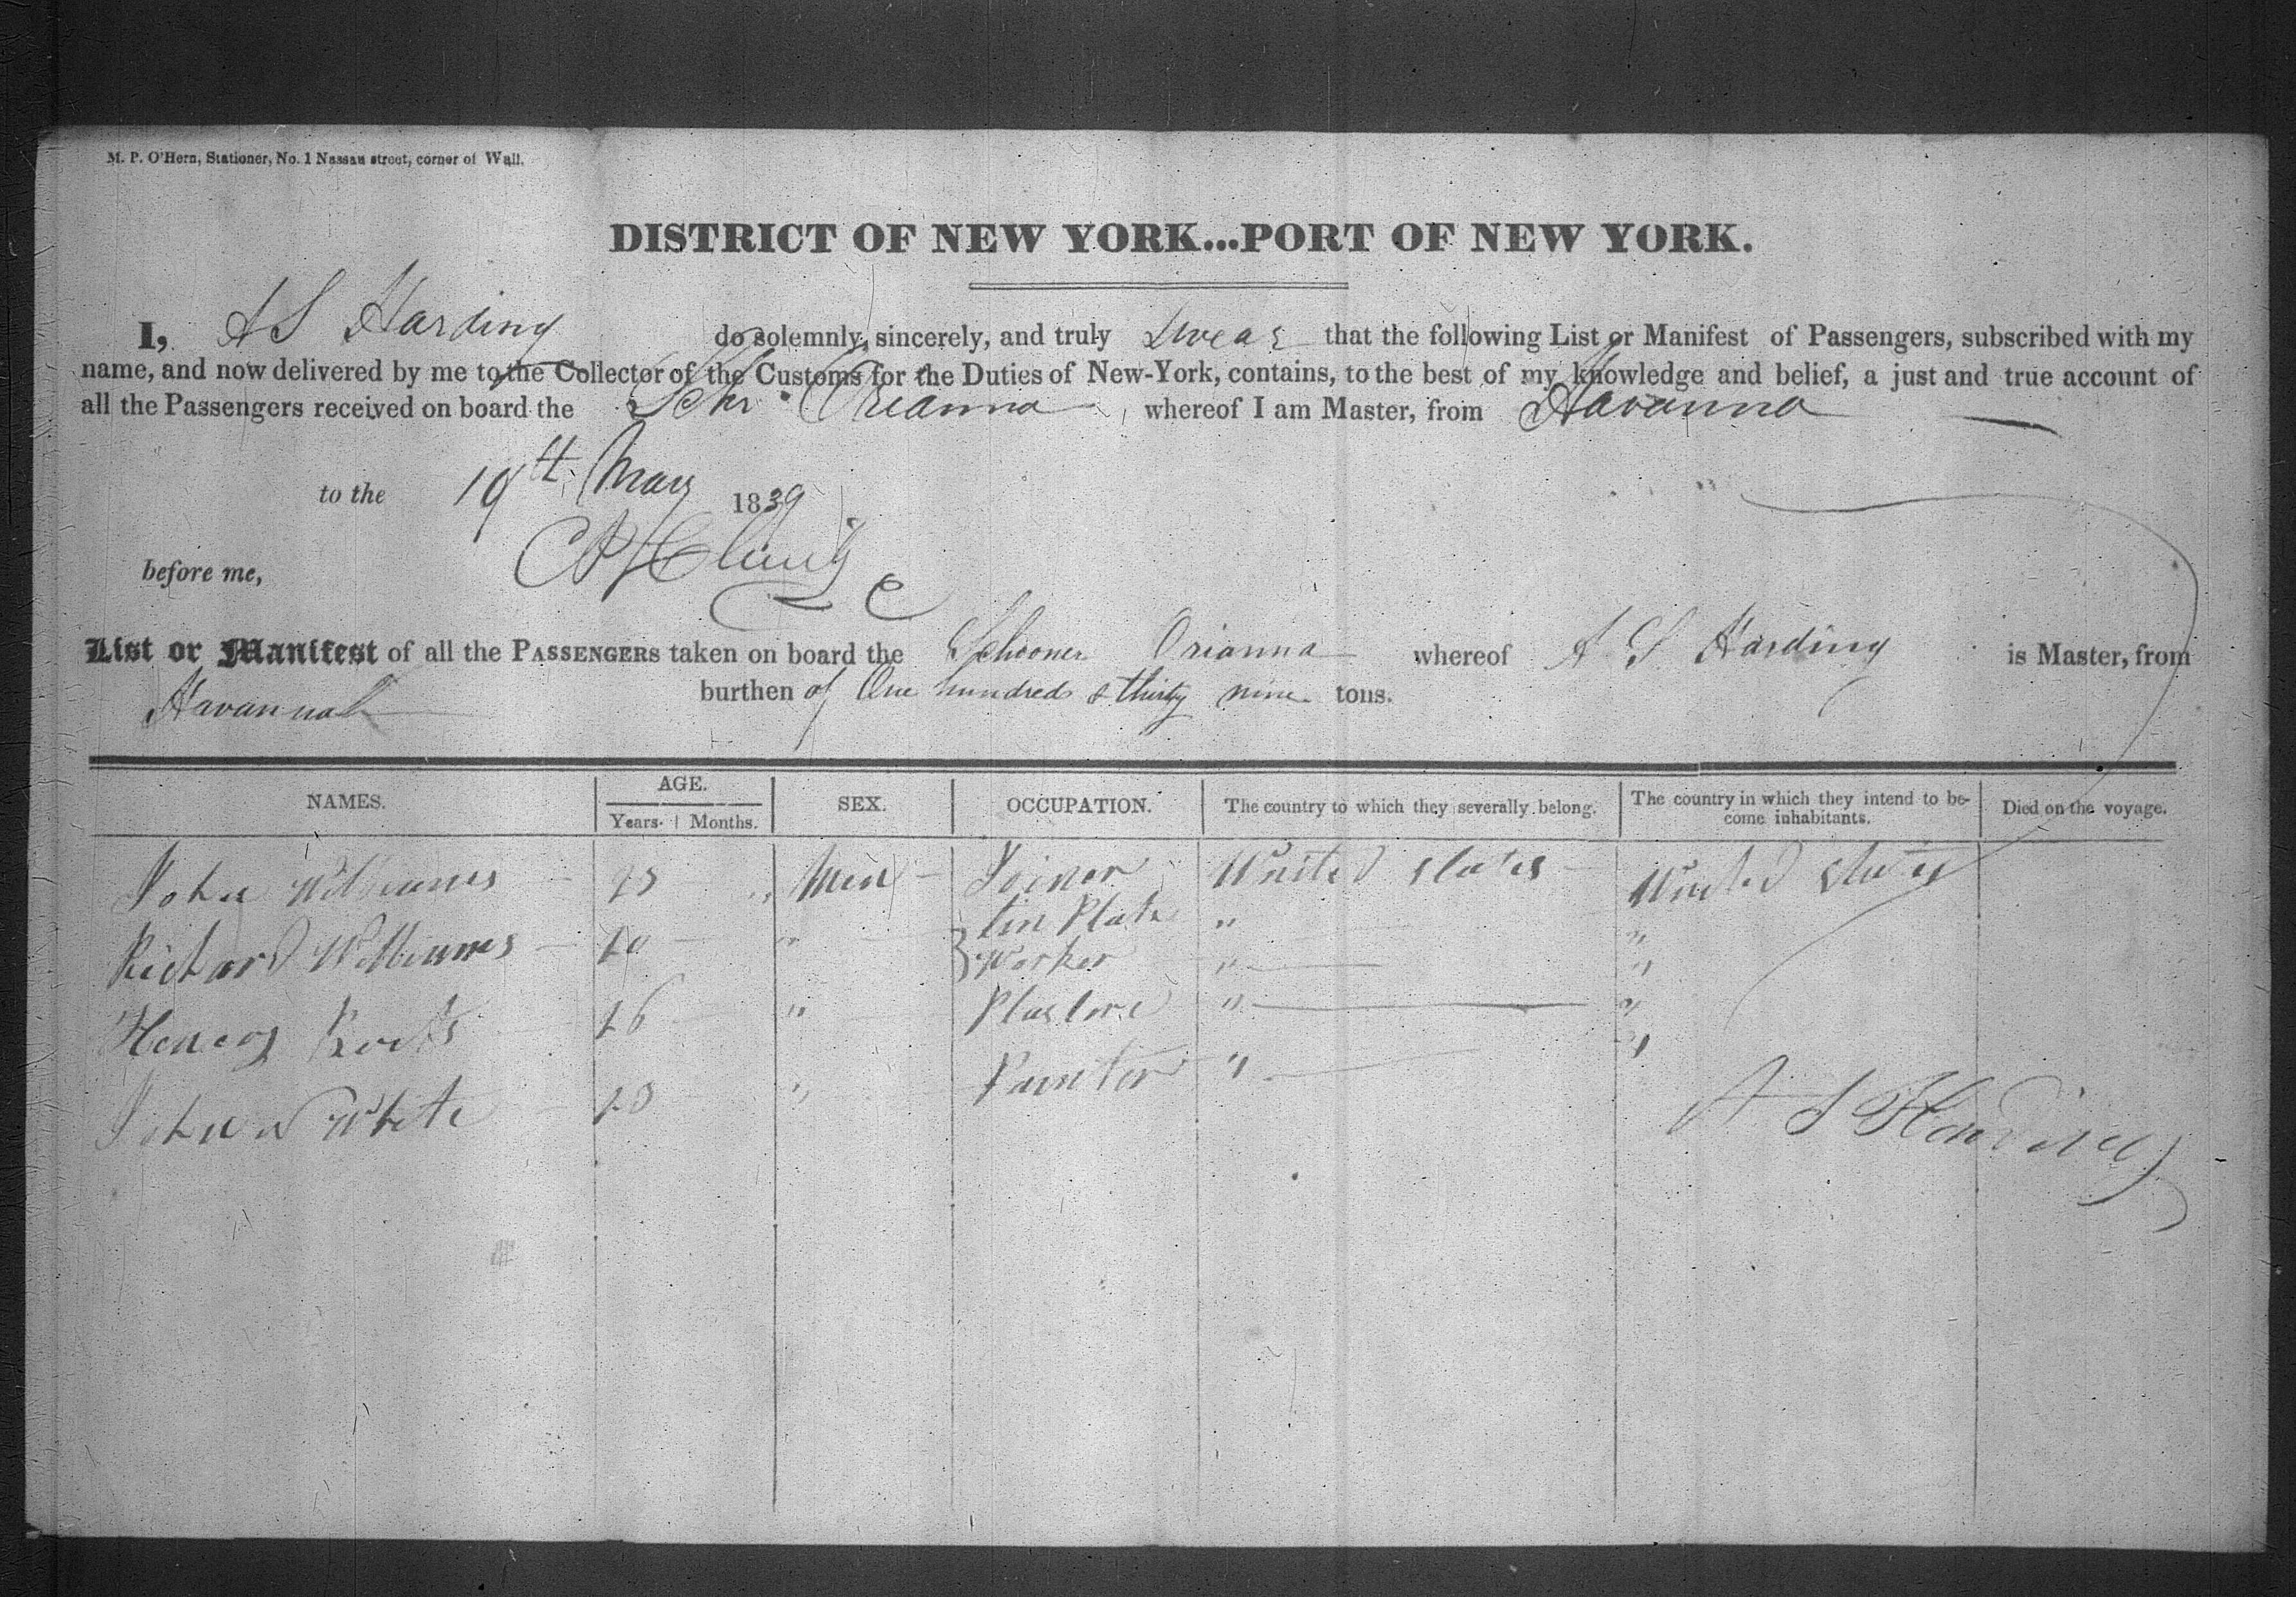 M. P. O'Hern, Stationer, No. 1 Nassau street, corner of Wall.
DISTRICT OF NEW YORK...PORT OF NEW YORK.
I, A S Harding do solemnly, sincerely, and truly swear that the following List or Manifest of Passengers, subscribed with my
name, and now delivered by me to the Collector of the Customs for the Duties of New-York, contains, to the best of my knowledge and belief, a just and true account of
all the Passengers received on board the Schr Orianna whereof I am Master, from Havanna
to the 19th May 1839
before me,
List or Manifest of all the PASSENGERS taken on board the Schooner Orianna whereof A S Harding is Master, from
Havannah burthen of One hundred & thirty nine tons.
NAMES. AGE. SEX. OCCUPATION. The country to which they severally belong. The country in which they intend to be-
come inhabitants. Died on the voyage.
Years. Months.
John Williams " Men Joiner United States United States
Richard Williams " tin Plate " "
Worker " "
Henery 26 " Plastore " "
John White " Painter " "
A S Harding